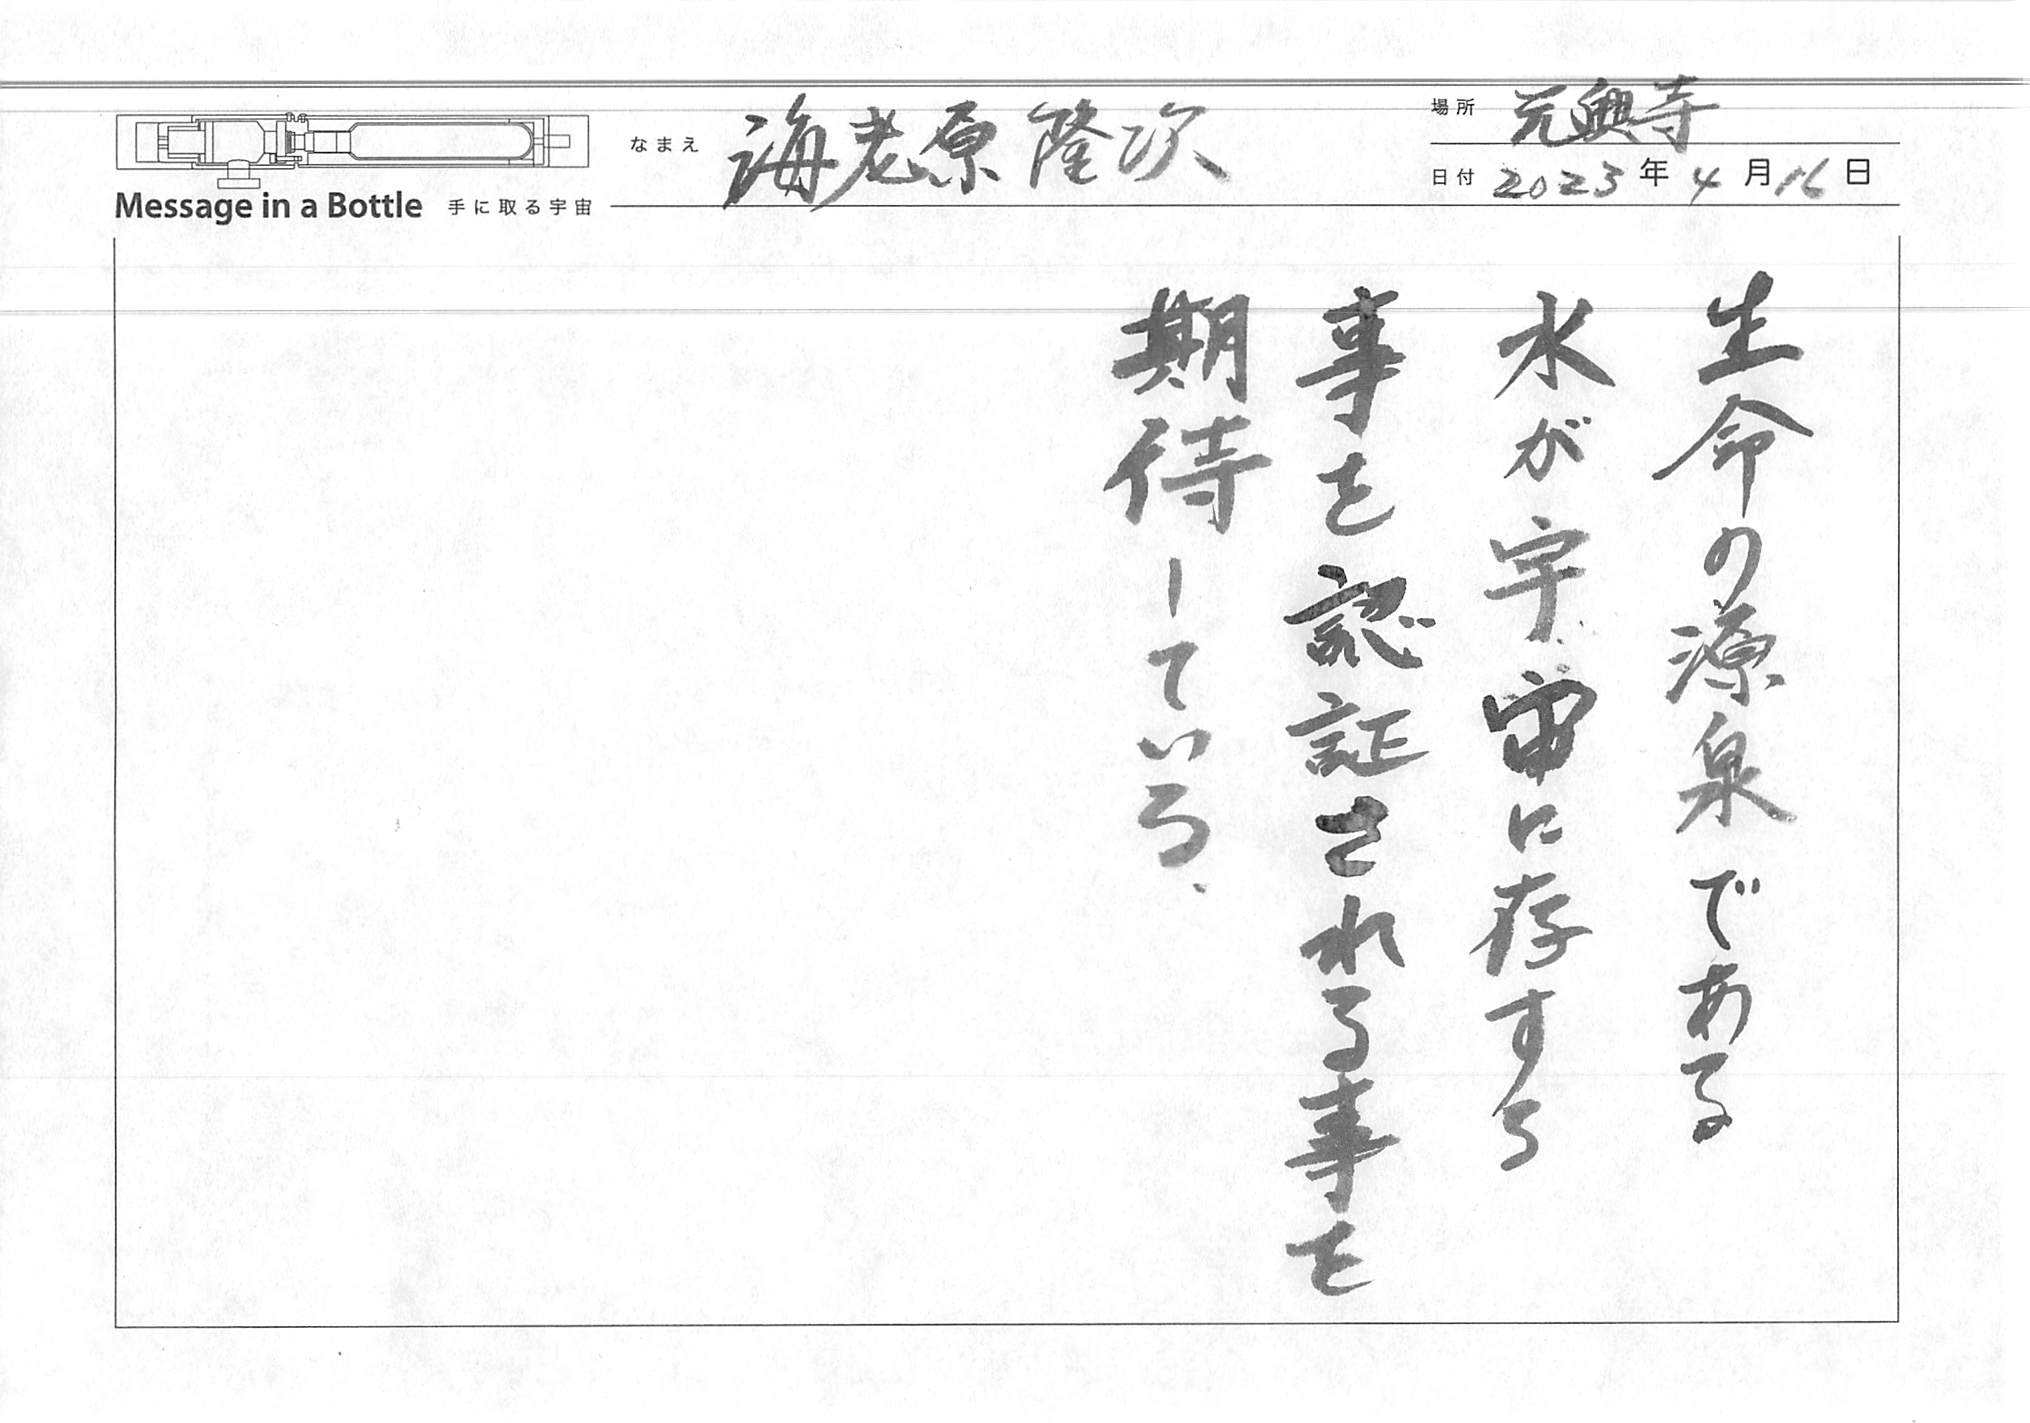 Message in a Bottle 手に取る宇宙
なまえ 海老原隆次
場所 元興寺
日付 2023年4月16日
生命の源泉である
水が宇宙に存する
事を認証される事を
期待している、